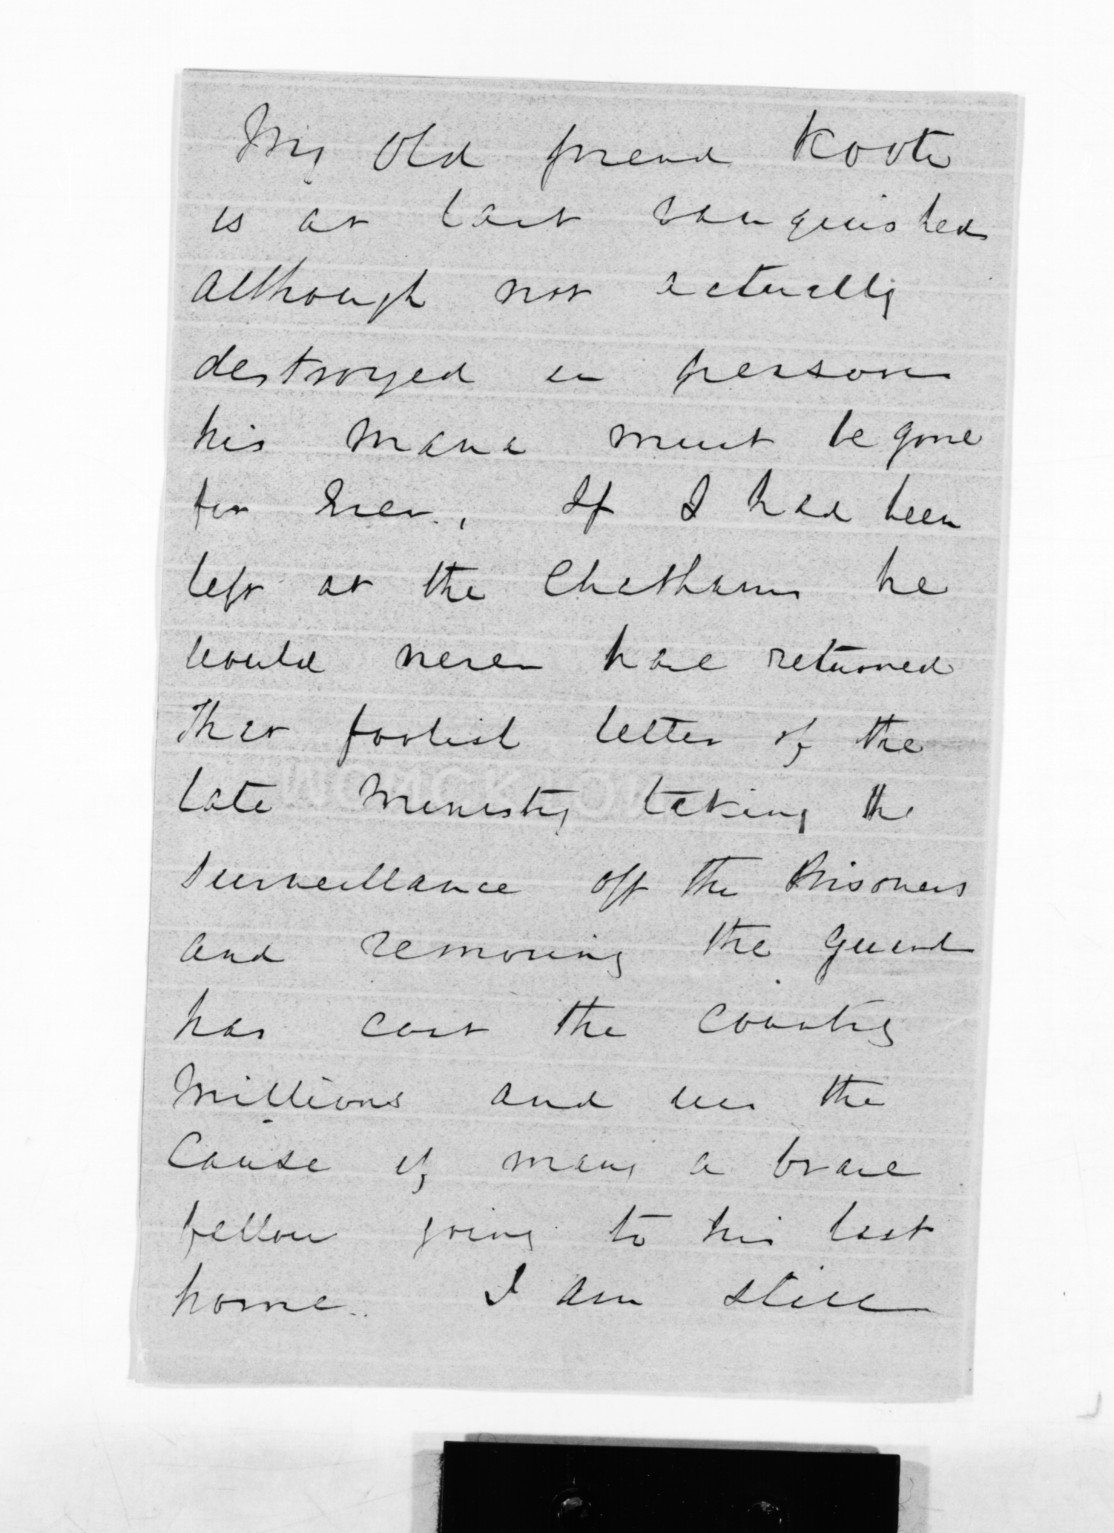 My Old friend Kooti
is at last vanquished
although not actually
destroyed in person
his mana must be gone
for Ever., If I had been
left at the Chathams he
would never have returned
That foolish letter of the
late Ministry taking the
Surveillance off the Prisoners
and removing the guard
has cost the Country
Millions and the
Cause of many a brave
fellow going to his last
home. I am still